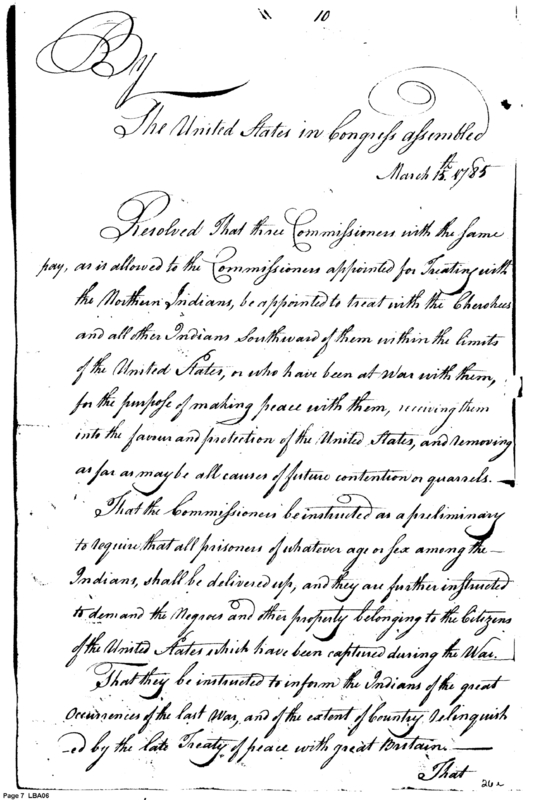 10
By
The United States in Congress assembled
March 15th. 1785
Resolved That three Commissioners with the same
pay, as is allowed to the Commissioners appointed for Treating with
the Northern Indians, be appointed to treat with the Cherokees
and all other Indians Southward of them within the limits
of the United States, or who have been at War with them,
for the purpose of making peace with them, receiving them
into the favour and protection of the United States, and removing
as far as may be all causes of future contention or quarrels. —
That the Commissioners be instructed as a preliminary
to require that all prisoners of whatever age or sex among the —
Indians, shall be delivered up, and they are further instructed
to demand the Negroes and other property belonging to the Citizens
of the United States which have been captured during the War.
That they be instructed to inform the Indians of the great
Occurrences of the last War, and of the extent of Country relinquish
-ed by the late Treaty of peace with great Britain. —
That
Page 7 LBA06